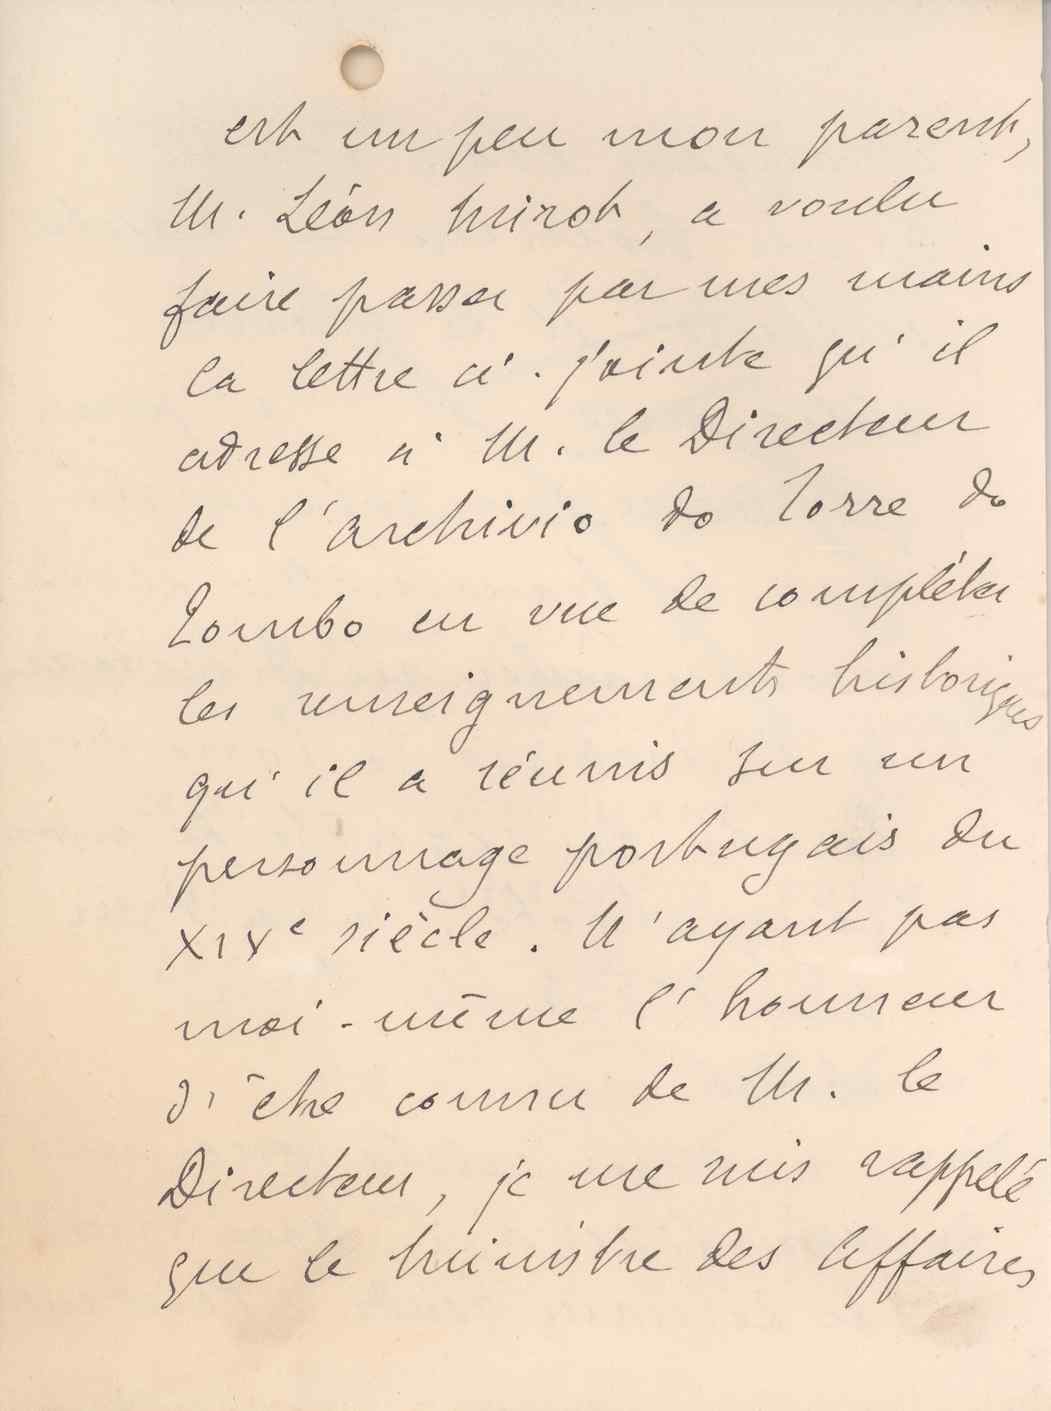 est un peu mon parent,
M. Léon Mirot, a voulu
faire passer par mes mains
la lettre ci-jointe qu'il
adresse à M. le Directeur
de l'Archivio do Torre do
Tombo en vue de compléter
les renseignements historiques
qu'il a réunis sur un
personnage portugais du
XIXe siècle. N'ayant pas
moi-même l'honneur
d'être connu de M. le
Directeur, je me suis rappelé
que le Ministre des Affaires